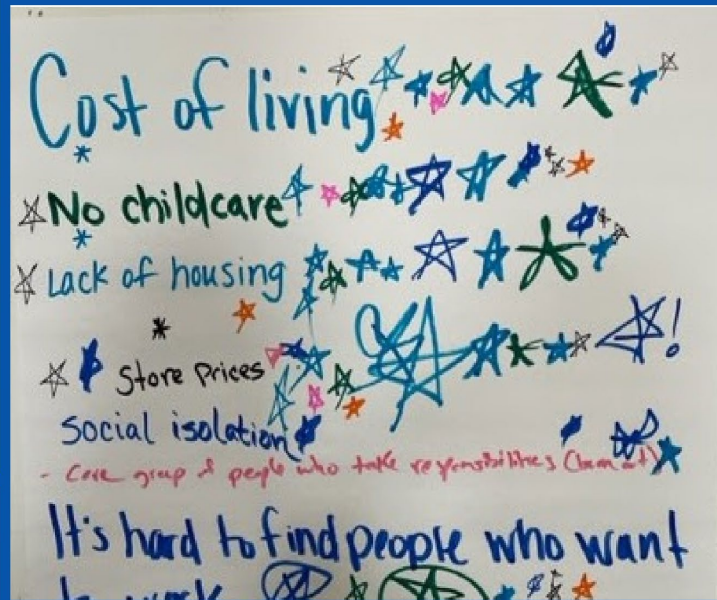 Cost of living
No childcare
Lack of housing
Store Prices
Social isolation
- Core group of people who take responsibilities (burn out)
It's hard to find people who want
to work